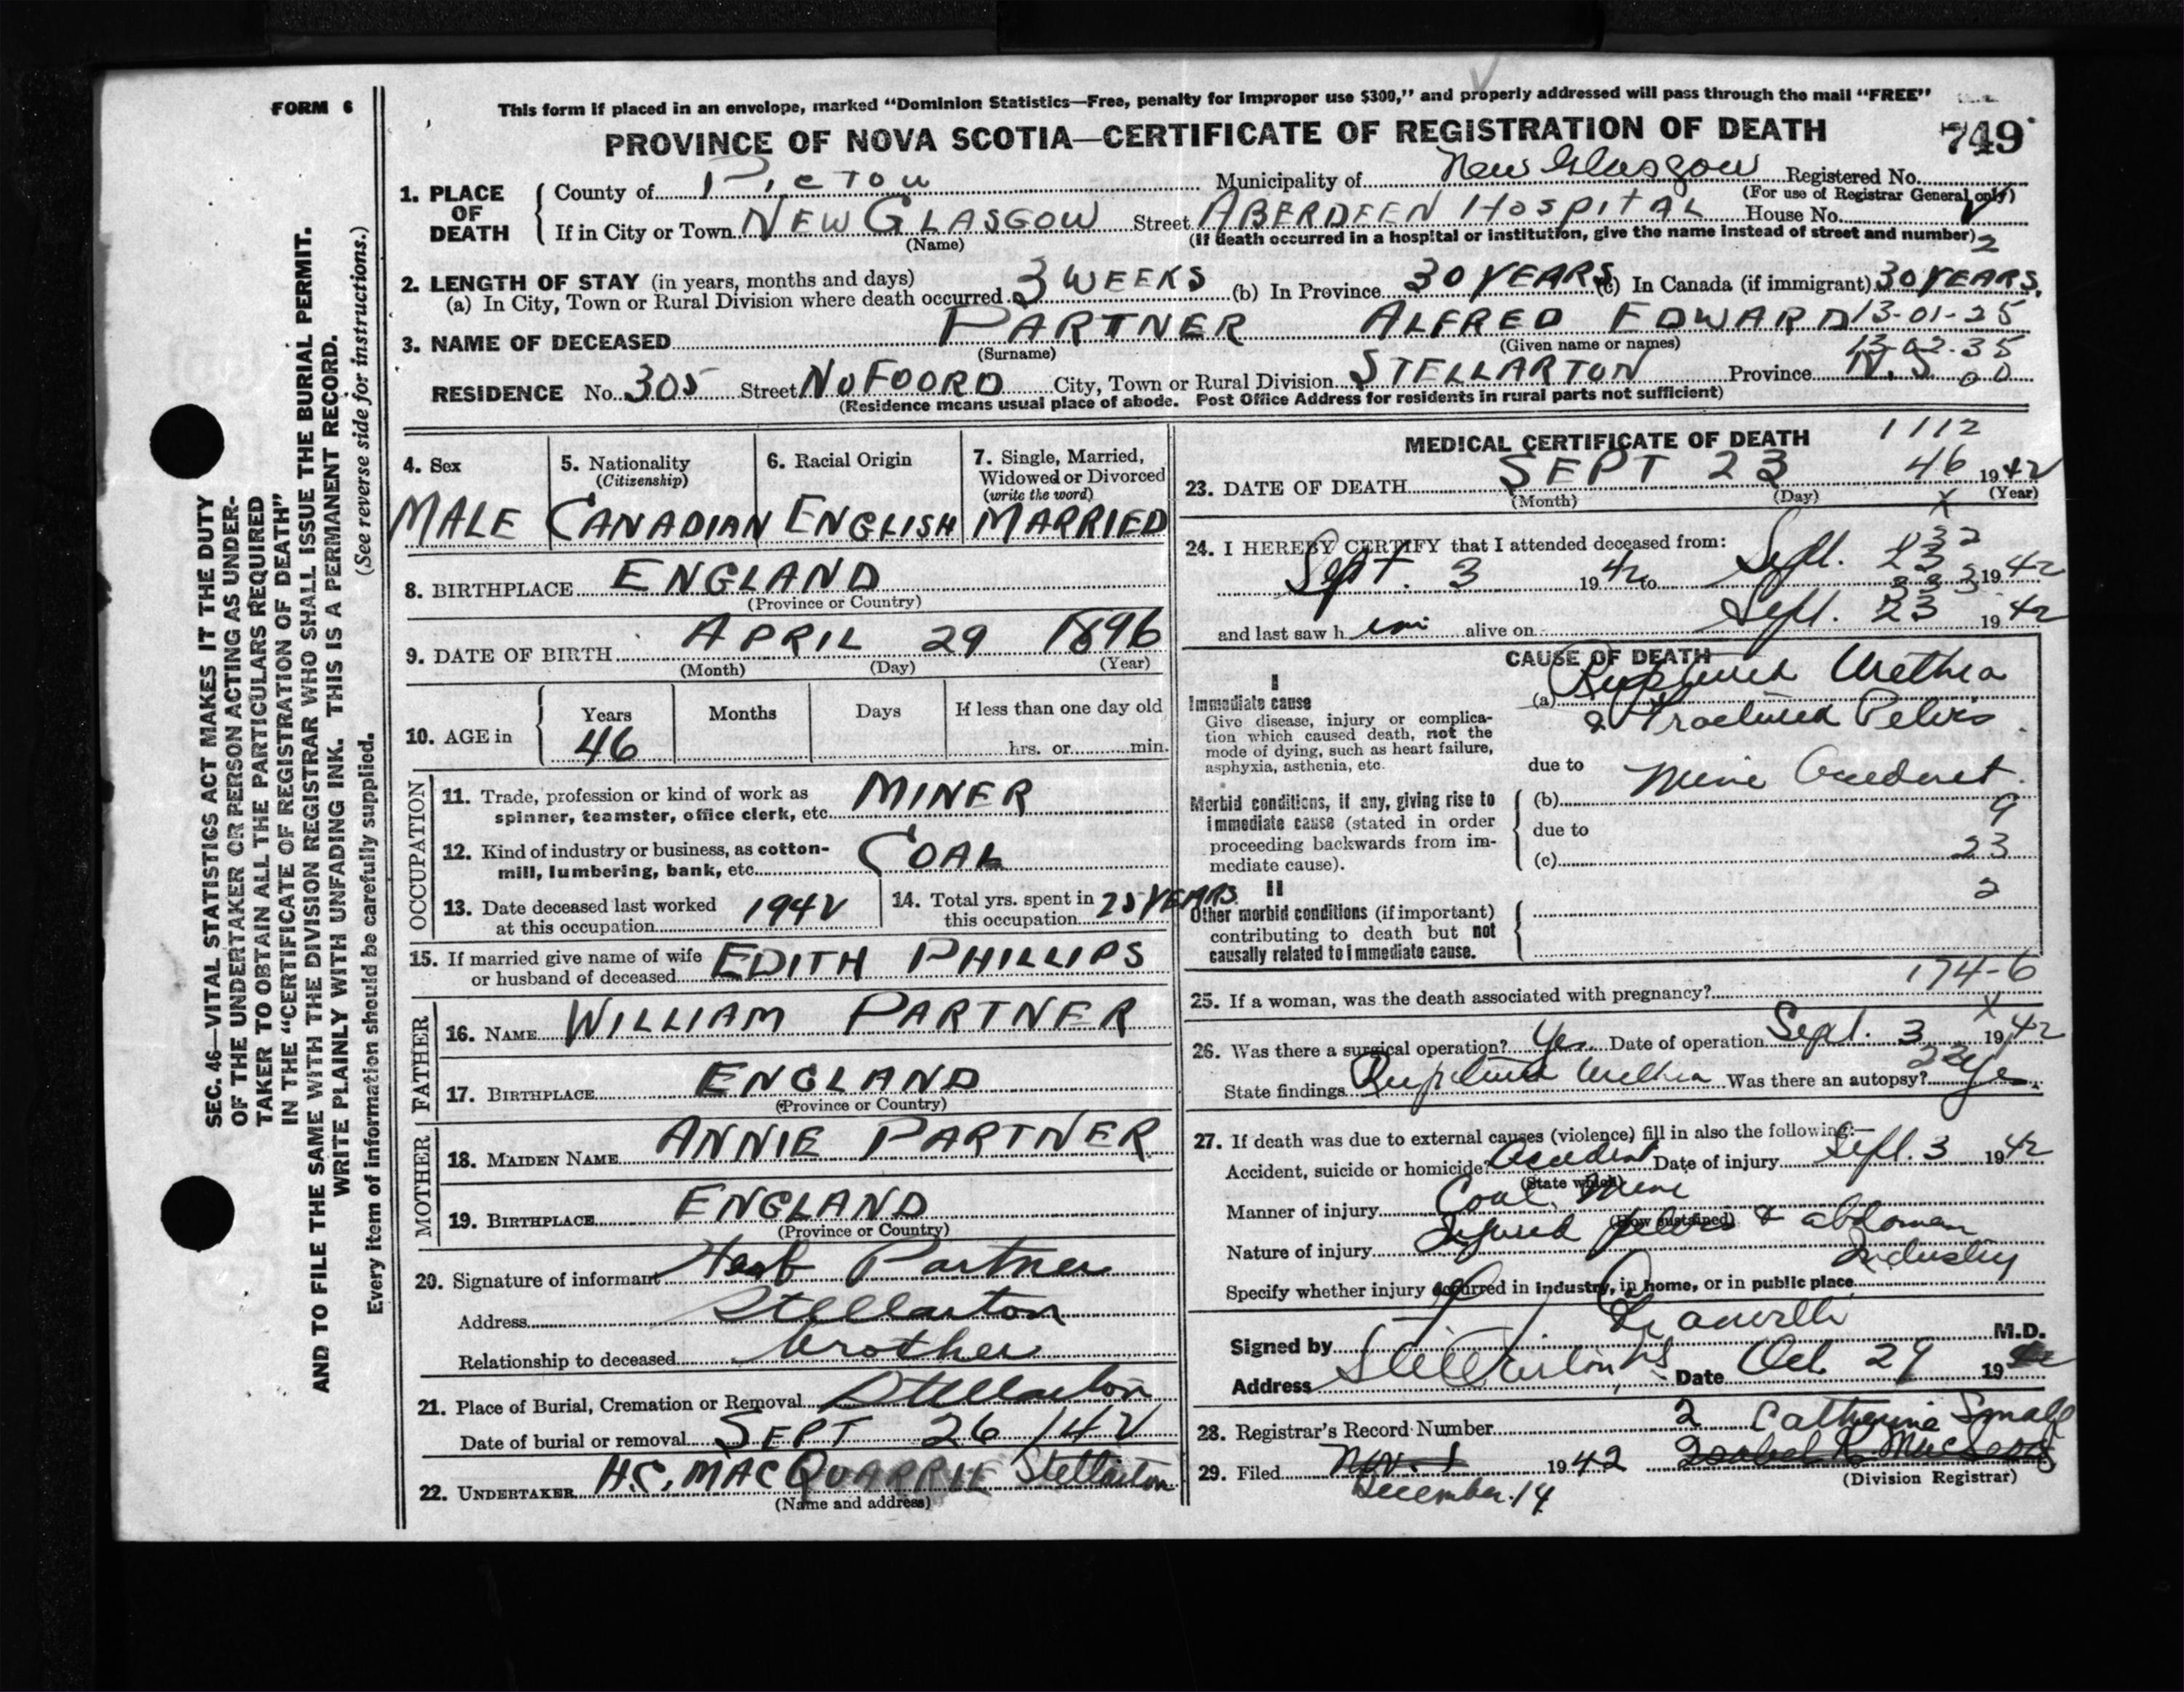 FORM 6
This form if placed in an envelope, marked “Dominion Statistics—Free, penalty for improper use $300,” and properly addressed will pass through the mail “FREE”
PROVINCE OF NOVA SCOTIA—CERTIFICATE OF REGISTRATION OF DEATH
749
SEC. 46—VITAL STATISTICS ACT MAKES IT THE DUTY
OF THE UNDERTAKER OR PERSON ACTING AS UNDER-
TAKER TO OBTAIN ALL THE PARTICULARS REQUIRED
IN THE “CERTIFICATE OF REGISTRATION OF DEATH”
AND TO FILE THE SAME WITH THE DIVISION REGISTRAR WHO SHALL ISSUE THE BURIAL PERMIT.
WRITE PLAINLY WITH UNFADING INK. THIS IS A PERMANENT RECORD.
Every item of information should be carefully supplied. (See reverse side for instructions.)
1. PLACE OF DEATH
County of Pictou Municipality of New Glasgow Registered No.
(For use of Registrar General only)
If in City or Town NEW GLASGOW Street ABERDEEN HOSPITAL House No.
(Name) (If death occurred in a hospital or institution, give the name instead of street and number)
2
2. LENGTH OF STAY (in years, months and days)
(a) In City, Town or Rural Division where death occurred 3 WEEKS (b) In Province 30 YEARS (c) In Canada (if immigrant) 30 YEARS.
3. NAME OF DECEASED PARTNER ALFRED EDWARD 13-01-25
(Surname) (Given name or names)
13-02-35
RESIDENCE No. 305 Street No FOORD City, Town or Rural Division STELLARTON Province N.S. 00
(Residence means usual place of abode. Post Office Address for residents in rural parts not sufficient)
4. Sex MALE
5. Nationality (Citizenship) CANADIAN
6. Racial Origin ENGLISH
7. Single, Married, Widowed or Divorced (write the word) MARRIED
8. BIRTHPLACE ENGLAND
(Province or Country)
9. DATE OF BIRTH APRIL 29 1896
(Month) (Day) (Year)
10. AGE in Years 46 Months Days If less than one day old
hrs. or min.
OCCUPATION
11. Trade, profession or kind of work as spinner, teamster, office clerk, etc. MINER
12. Kind of industry or business, as cotton-mill, lumbering, bank, etc. COAL
13. Date deceased last worked at this occupation 1942
14. Total yrs. spent in this occupation 25 YEARS.
15. If married give name of wife or husband of deceased EDITH PHILLIPS
FATHER
16. NAME WILLIAM PARTNER
17. BIRTHPLACE ENGLAND
(Province or Country)
MOTHER
18. MAIDEN NAME ANNIE PARTNER
19. BIRTHPLACE ENGLAND
(Province or Country)
20. Signature of informant Herb Partner
Address Stellarton
Relationship to deceased brother
21. Place of Burial, Cremation or Removal Stellarton
Date of burial or removal SEPT 26 /42
22. UNDERTAKER H.C. MACQUARRIE Stellarton
(Name and address)
MEDICAL CERTIFICATE OF DEATH 1112
46
23. DATE OF DEATH SEPT 23 1942
(Month) (Day) (Year)
x
24. I HEREBY CERTIFY that I attended deceased from:
Sept. 3 1942 to Sept. 23 1942
and last saw him alive on Sept. 23 1942
CAUSE OF DEATH
I
Immediate cause
Give disease, injury or complica-
tion which caused death, not the
mode of dying, such as heart failure,
asphyxia, asthenia, etc.
(a) Ruptured Urethra
& Fractured Pelvis
due to
Morbid conditions, if any, giving rise to
immediate cause (stated in order
proceeding backwards from im-
mediate cause).
(b) Mine Accident.
9
due to
(c) 23
2
II
Other morbid conditions (if important)
contributing to death but not
causally related to immediate cause.
174-6
25. If a woman, was the death associated with pregnancy?
x
26. Was there a surgical operation? Yes Date of operation Sept. 3 1942
State findings Ruptured Urethra Was there an autopsy? Yes
27. If death was due to external causes (violence) fill in also the following:—
Accident, suicide or homicide? Accident Date of injury Sept. 3 1942
(State which)
Manner of injury Coal Mine
(How sustained)
Nature of injury Injured pelvis & abdomen
Specify whether injury occurred in industry, in home, or in public place Industry
Signed by M.D.
Address Stellarton, NS Date Oct 29 19
28. Registrar's Record Number 2 Catherine Small
29. Filed Nov. 1 1942
December 14
(Division Registrar)